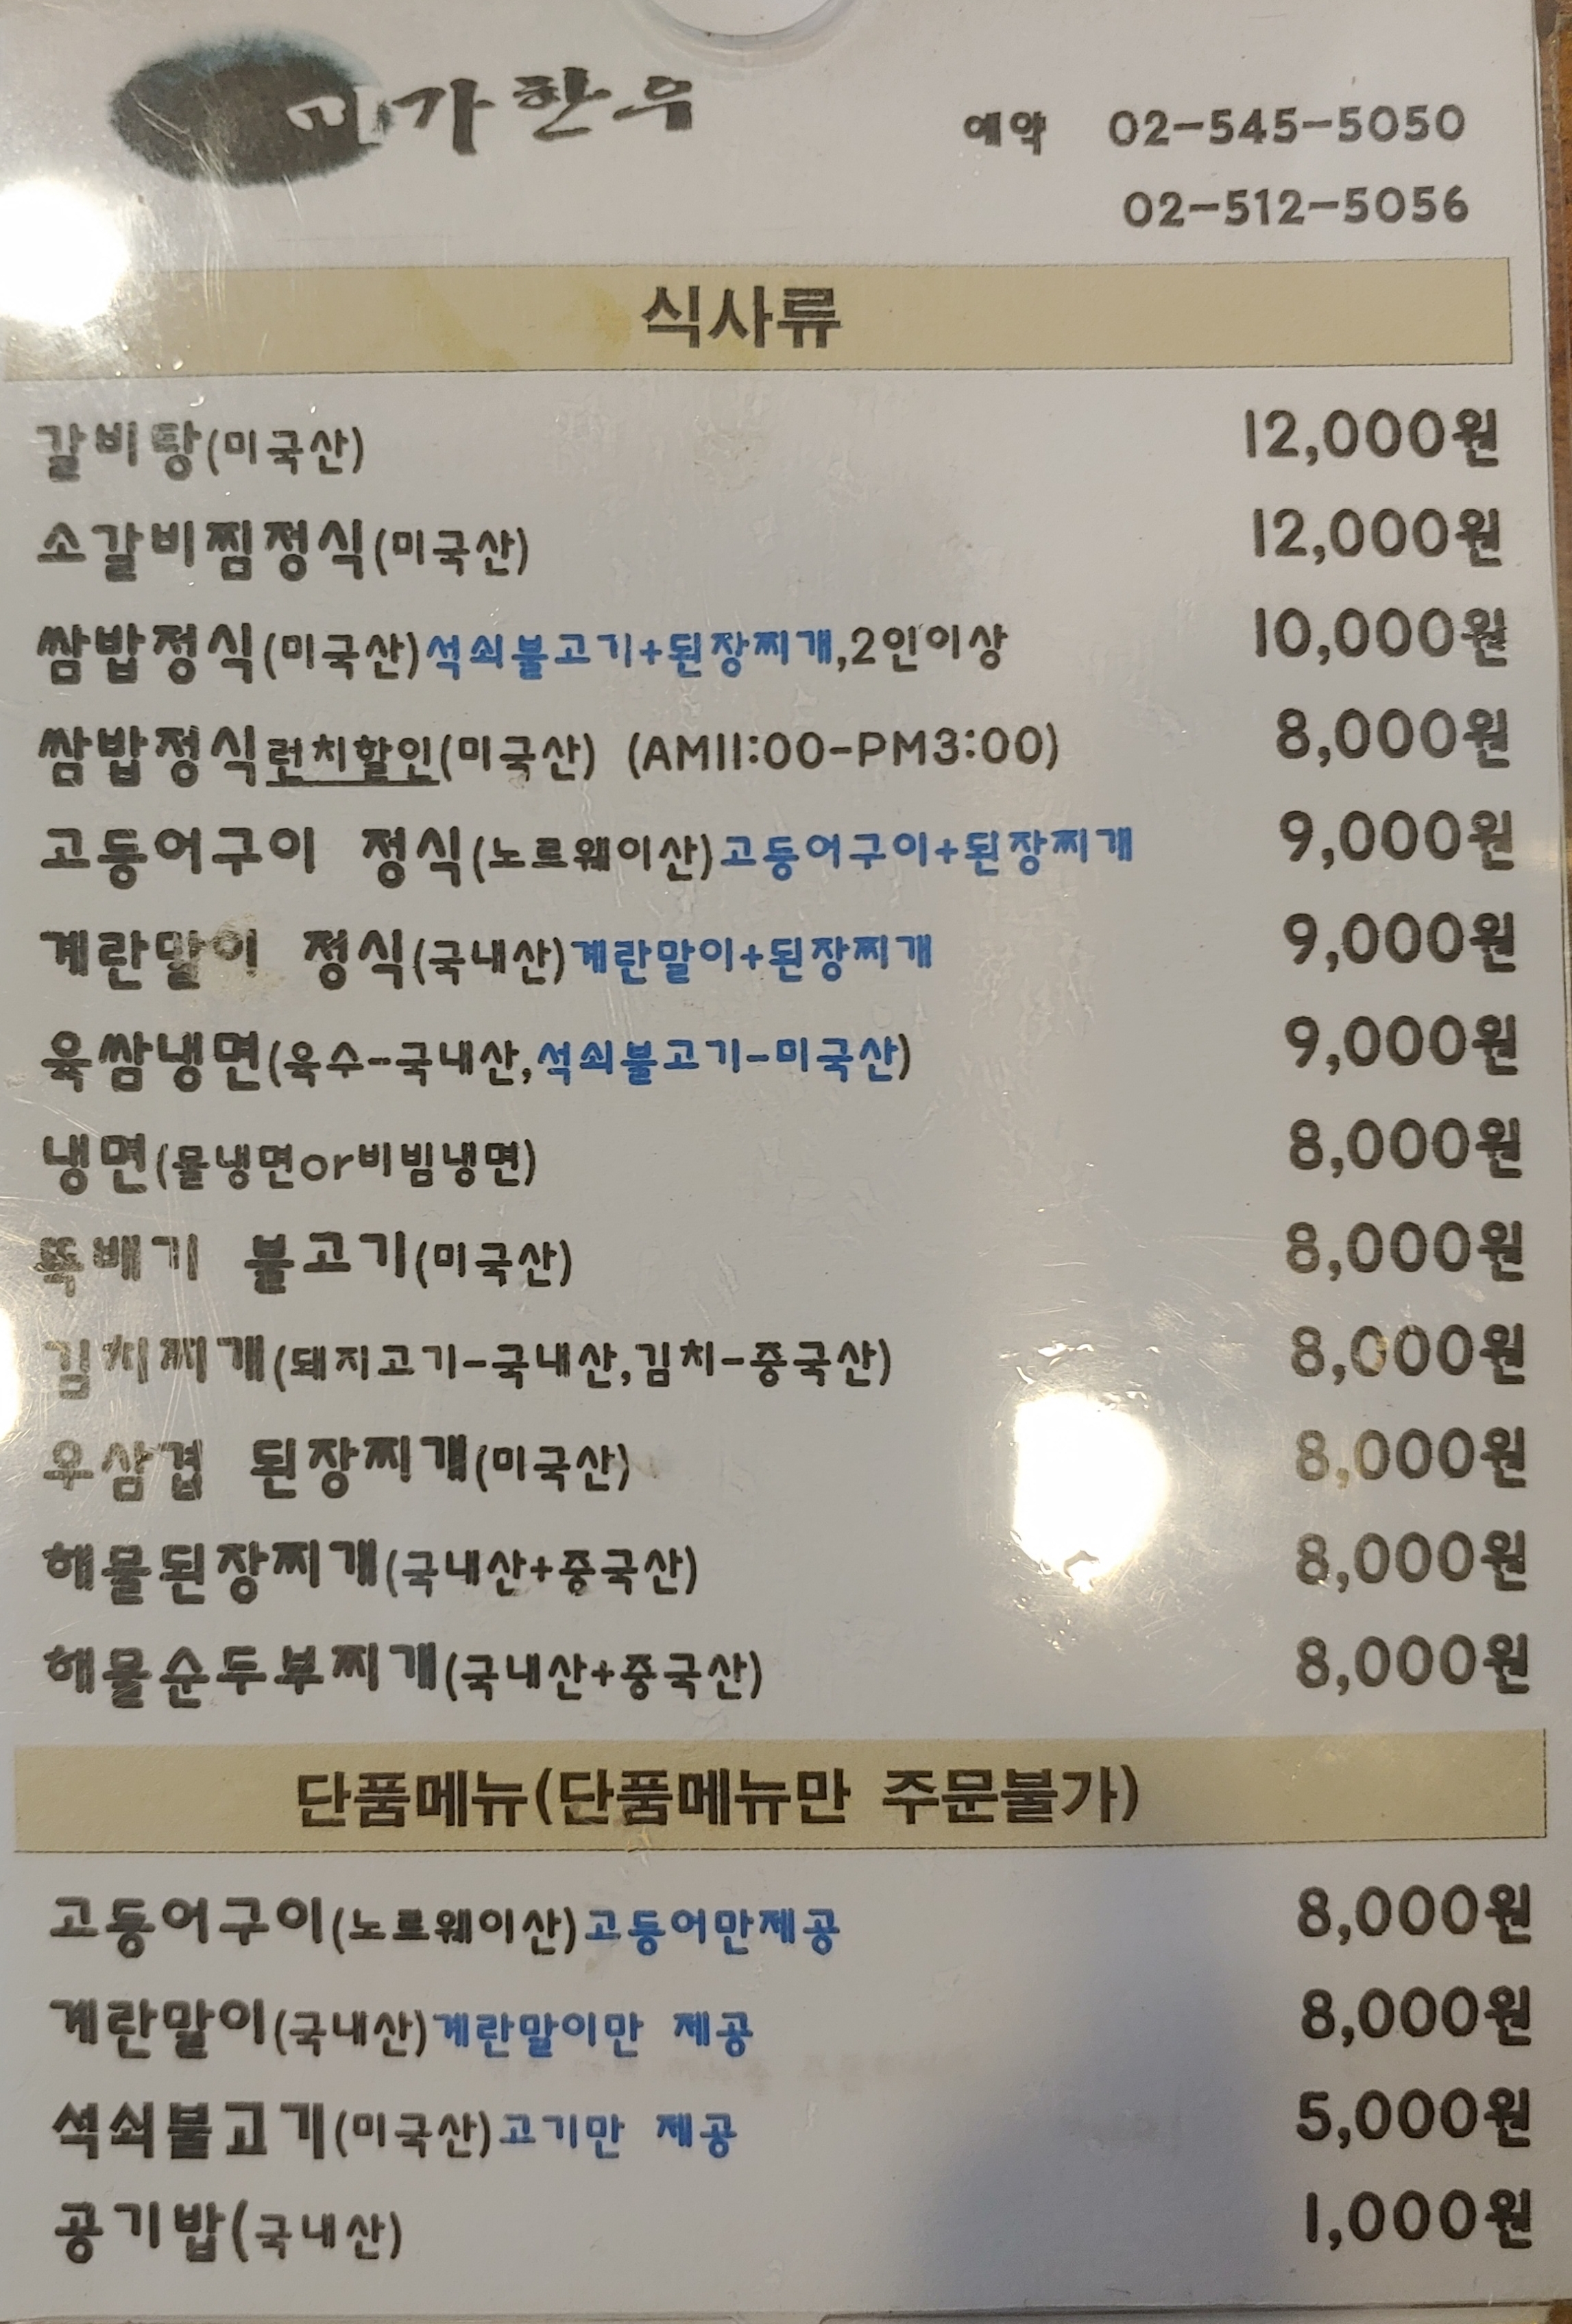 가한우
예약 02-545-5050
02-512-5056
식사류
갈비탕(미국산) 12,000원
소갈비찜정식(미국산) 12,000원
쌈밥정식(미국산)석쇠불고기+된장찌개,2인이상 10,000원
쌈밥정식런치할인(미국산) (AM11:00-PM3:00) 8,000원
고등어구이 정식(노르웨이산)고등어구이+된장찌개 9,000원
계란말이 정식(국내산)계란말이+된장찌개 9,000원
육쌈냉면(육수-국내산,석쇠불고기-미국산) 9,000원
냉면(물냉면or비빔냉면) 8,000원
뚝배기 불고기(미국산) 8,000원
김치찌개(돼지고기-국내산,김치-중국산) 8,000원
우삼겹 된장찌개(미국산) 8,000원
해물된장찌개(국내산+중국산) 8,000원
해물순두부찌개(국내산+중국산) 8,000원
단품메뉴(단품메뉴만 주문불가)
고등어구이(노르웨이산)고등어만제공 8,000원
계란말이(국내산)계란말이만 제공 8,000원
석쇠불고기(미국산)고기만 제공 5,000원
공기밥(국내산) 1,000원